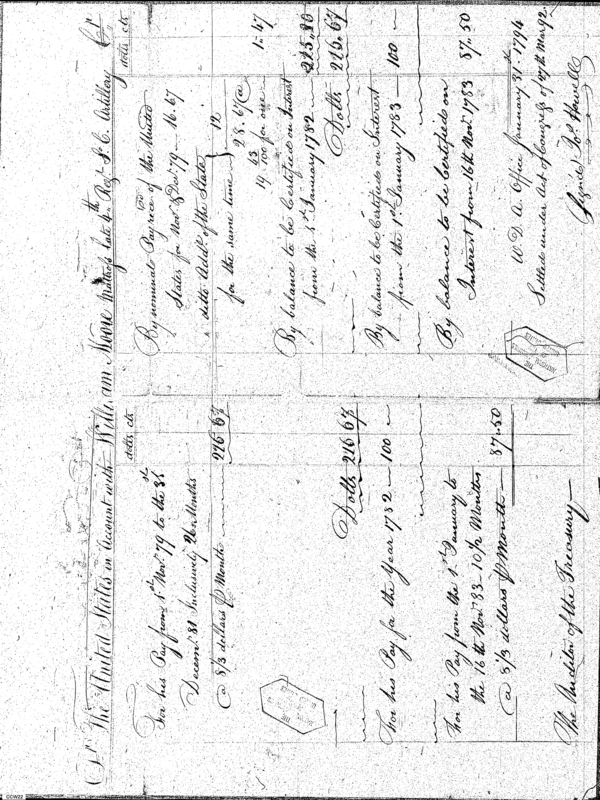 Dr. The United States in Account with William Moore Matross late 4th Regt. S. C. Artillery Cr.
dolls cts
For his Pay from 1st Novr. 79 to the 31st
Decemr. 81 Inclusively 26 Months
@ 8 1/3 dollars P Month 216 67
Dolls 216 67
For his Pay for the Year 1782 — 100 —
For his Pay from the 1st January to
the 16th Novr. 83 — 10 1/2 Months
@ 8 1/3 dollars P Month — 87.50
The Auditor of the Treasury
dolls cts
By nominal Pay recd. of the United
States for Novr. & Decr. 79 — 16.67
ditto Addl. of the State
for the same time } 12
28.67 @
19.100 for one 1.47
By balance to be Certified on Interest
from the 1st January 1782 — 215.20
Dolls 216.67
By balance to be Certified on Interest
from the 1st January 1783 — 100 —
By balance to be Certified on
Interest from 16th Novr. 1783 87.50
W. D. A. Office January 31st. 1794
Settled under Act of Congress of 27th Mar 92.
Signed Jos. Howell